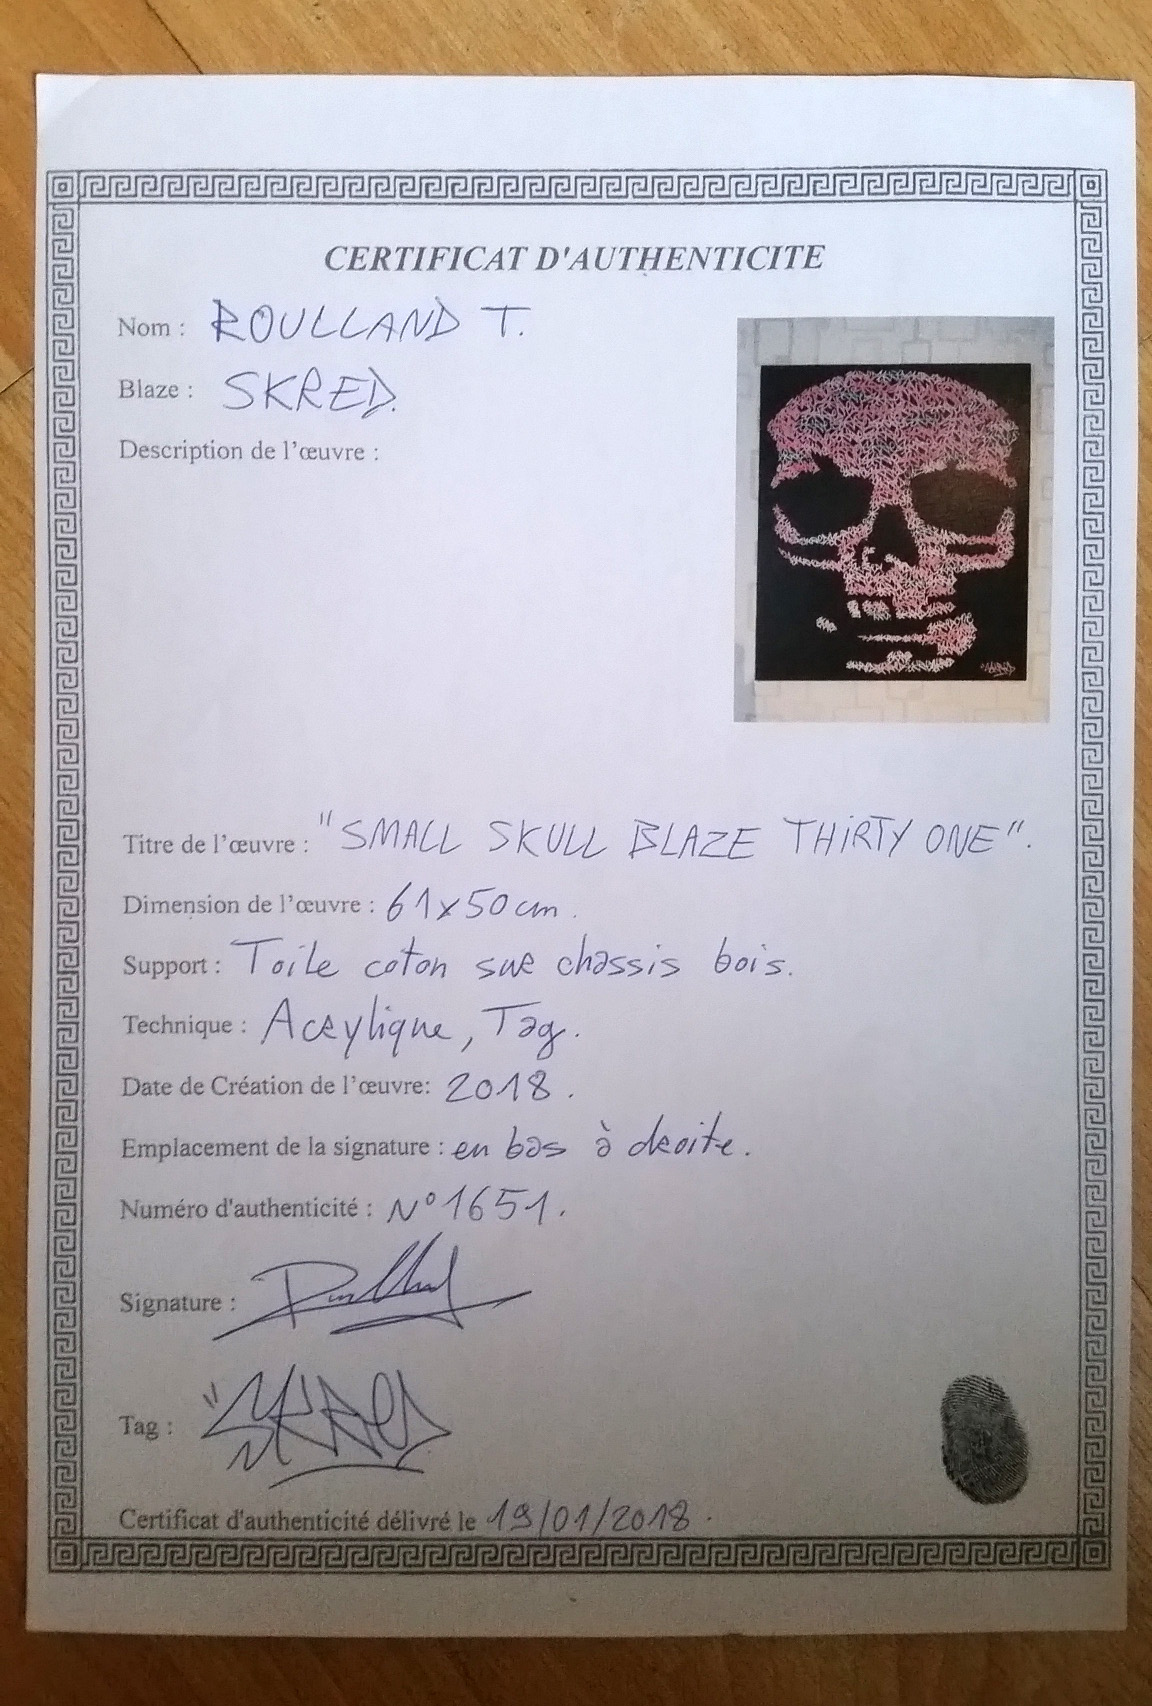 CERTIFICAT D'AUTHENTICITE
Nom : ROULLAND T.
Blaze : SKRED.
Description de l'œuvre :
Titre de l'œuvre : "SMALL SKULL BLAZE THIRTY ONE".
Dimension de l'œuvre : 61x50cm.
Support : Toile coton sur chassis bois.
Technique : Acrylique, Tag.
Date de Création de l'œuvre: 2018.
Emplacement de la signature : en bas à droite.
Numéro d'authenticité : N°1651.
Signature :
Tag : "SKRED
Certificat d'authenticité délivré le 19/01/2018.